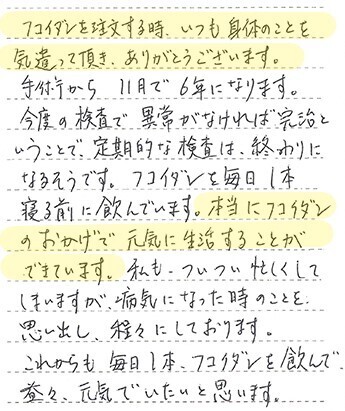 フコイダンを注文する時、いつも身体のことを
気遣って頂き、ありがとうございます。
手術から 11月で6年になります。
今度の検査で異常がなければ完治と
いうことで、定期的な検査は、終わりに
なるそうです。フコイダンを毎日1本
寝る前に飲んでいます。本当にフコイダン
のおかげで元気に生活することが
できています。私も、ついつい忙しくして
しまいますが、病気になった時のことを
思い出し、程々にしております。
これからも毎日1本、フコイダンを飲んで、
益々、元気でいたいと思います。